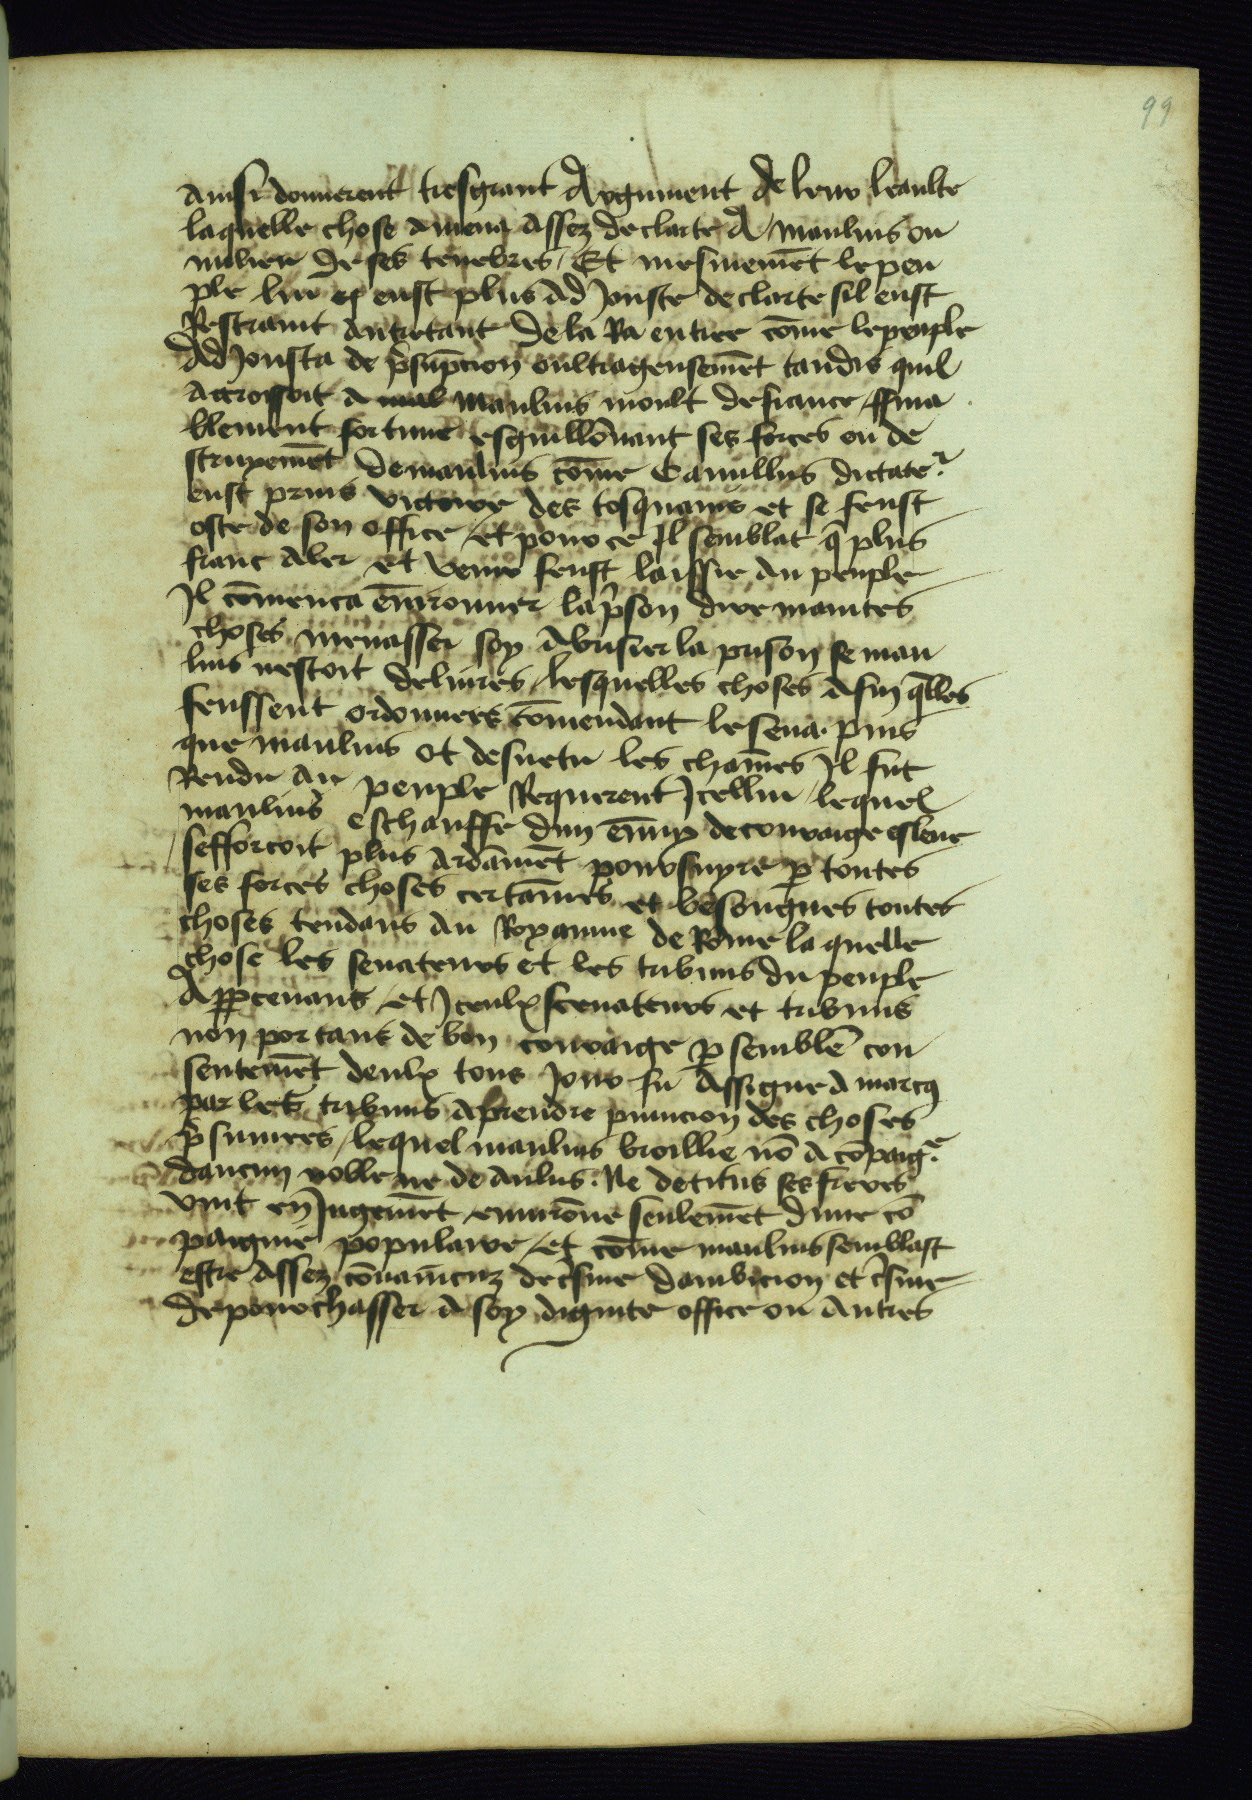 99
ainsi donnerent tresgrant Argument de leur leaulte
laquelle chose amena assez de clarte A manlius ou
milieu de ses tenebres / Et mesmemēt le peu
ple lui en eust plus ad Jouste de clarte sil eust
Restraint autretant de la Ra entree cōme le peuple
Ad Jousta de p̄supcion oultrageusemēt tandis quil
accroissoit a manlius moult de fiance / ffina
blement fortune esguillōnant ses forces ou de
struyemēt de manlius cōme Camillus dictate
eust prins victoire des tosquains et se feust
oste de son office / et pour ce Il semblat q̄ plus
franc aler et venir feust laissie au peuple
Il cōmenca ēnuironner la p̄son dire maintes
choses menasser soy A brisier la prison se man
lius nestoit deliures / lesquelles choses A fin q̄lles
feussent ordonnees cōmendant le sena. puis
que manlius ot desuetu les chaīnes Il fut
Rendu au peuple Requerent Icellui / lequel
manlius eschauffe dun ēnuy de couraige esleue
/ sefforcoit plus ardāmēt poursuyre p toutes
ses forces choses certaīnes et besongnes toutes
choses tendans au Royaume de Rome la quelle
chose les senateurs et les tribuns du peuple
Appceuans / et Iceulx senateurs et tribuns
non portans de bon couraige p semblē con
sentemēt deulx tous Jour fu Assigne A marcq
par les tribuns A prendre punicion des choses
p̄sumees / lequel manlius broillie nō A cōpaig
daucun noble ne de Aulus. Ne de titus ses freres
vint en Jugemēt enuirōne seulemēt dune cō
paignie populaire / et cōme manlius semblast
estre Assez cōuaīncuz de crime dambicion et crime
de pourchasser A soy dignite office ou autres